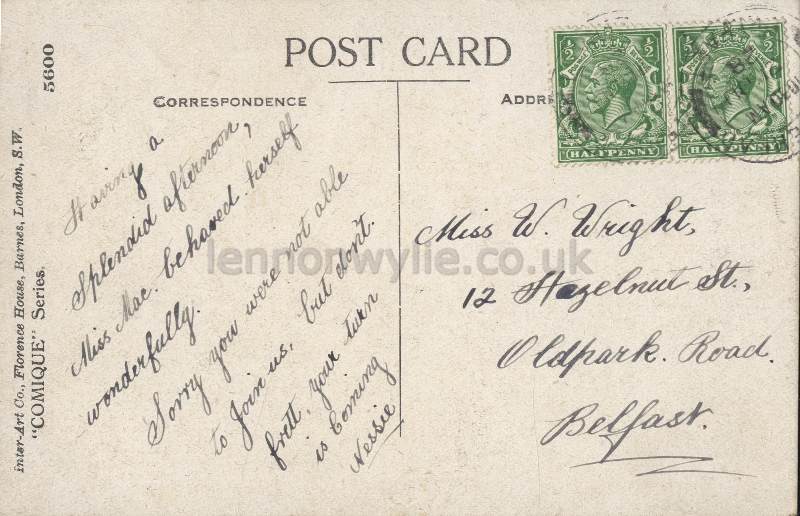 POST CARD
CORRESPONDENCE
ADDR
5600
Inter-Art Co., Florence House, Barnes, London, S.W.
"COMIQUE" Series.
Having a
Splendid afternoon,
Miss Mac. behaved herself
wonderfully.
Sorry you were not able
to Join us, but don't.
frett, your turn
is Coming
Nessie
Miss W. Wright,
12 Hazelnut St.,
Oldpark. Road.
Belfast.
1/2 1/2
HALFPENNY
1/2 1/2
HALFPENNY
lennonwylie.co.uk